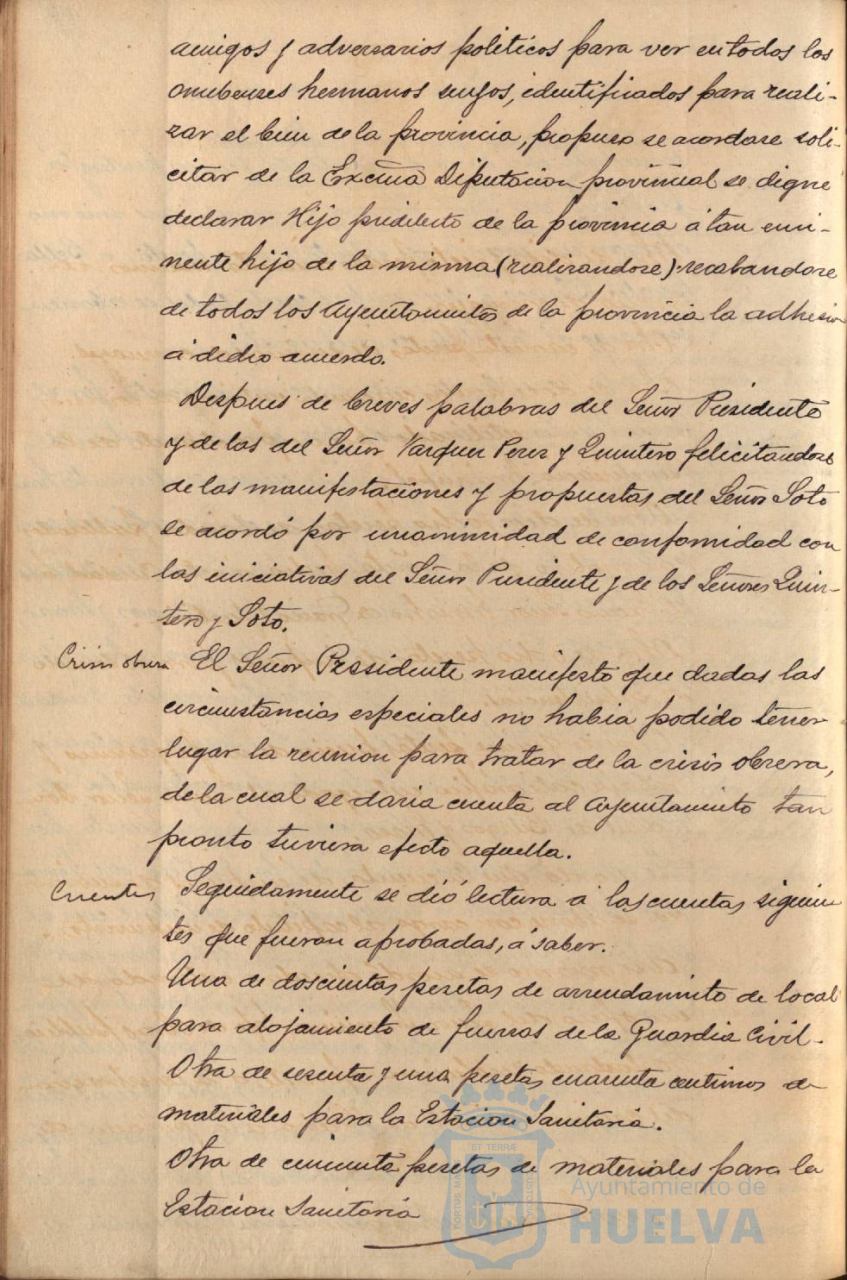 amigos y adversarios politicos para ver en todos los
onubenses hermanos suyos, identificados para reali-
zar el bien de la provincia, propuso se acordase soli-
citar de la Excma Diputacion provincial se digne
declarar Hijo predilecto de la provincia á tan emi-
nente hijo de la misma (realizandose) recabandose
de todos los Ayuntamientos de la provincia la adhesion
á dicho acuerdo.
Despues de breves palabras del Señor Presidente
y de las del Señor Vazquez Perez y Quintero felicitandose
de las manifestaciones y propuestas del Señor Soto
se acordó por unanimidad de conformidad con
las iniciativas del Señor Presidente y de los Señores Quin-
tero y Soto.
Crisis obrera El Señor Presidente manifestó que dadas las
circunstancias especiales no habia podido tener
lugar la reunion para tratar de la crisis obrera,
de la cual se daria cuenta al Ayuntamiento tan
pronto tuviera efecto aquella.
Cuentas Seguidamente se dió lectura á las cuentas siguien
tes que fueron aprobadas, á saber.
Una de doscientas pesetas de arrendamiento de local
para alojamiento de fuerzas de la Guardia Civil.
Otra de sesenta y una pesetas cuarenta centimos de
materiales para la Estacion Sanitaria.
Otra de cincuenta pesetas de materiales para la
Estacion Sanitaria
Ayuntamiento de
HUELVA